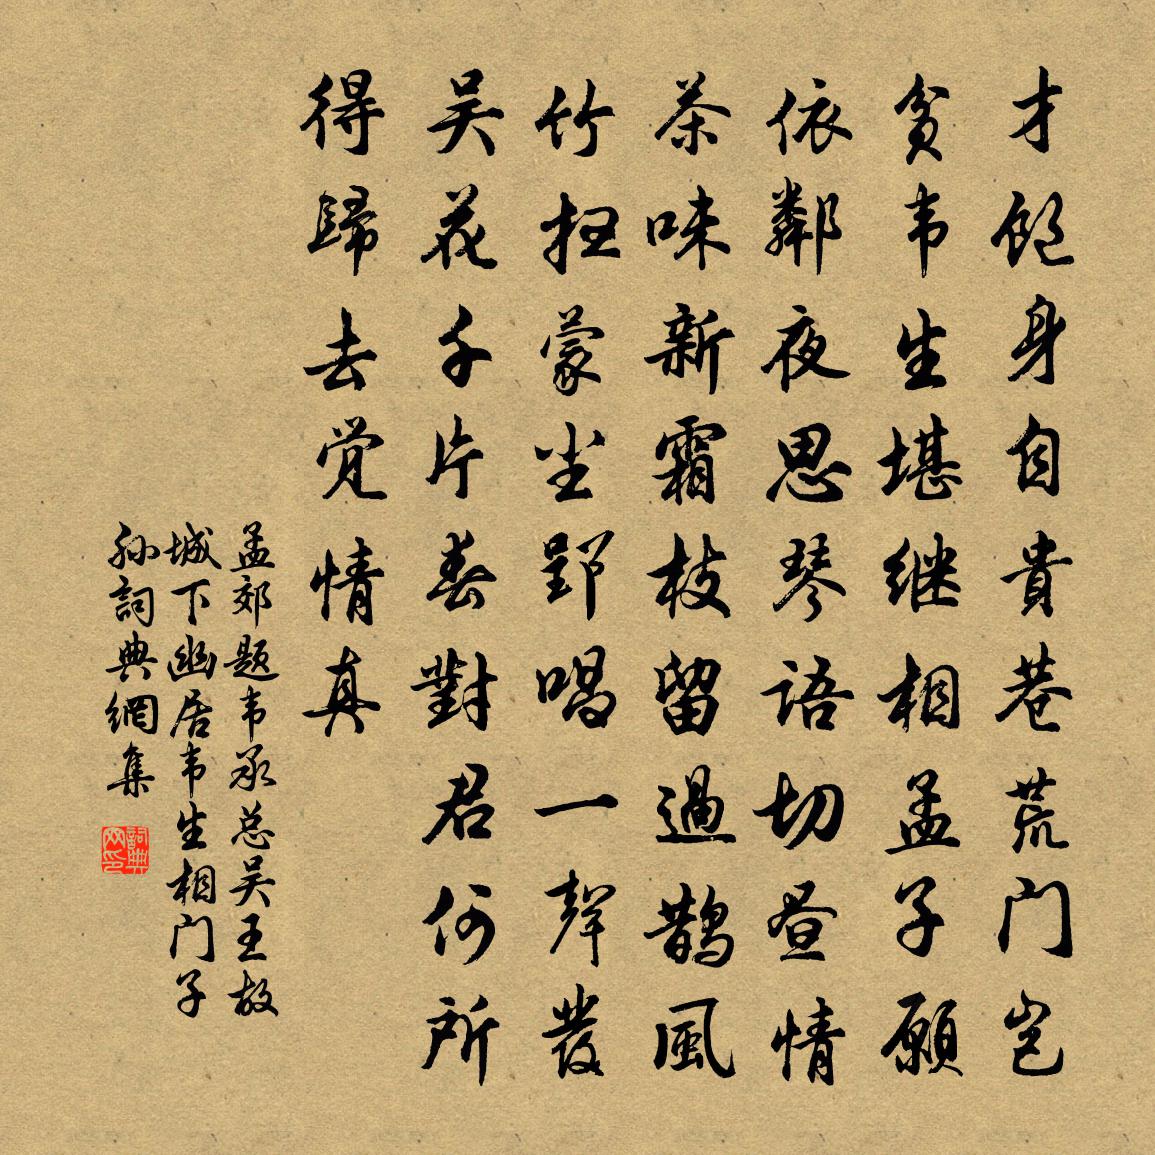 才饱身自貴巷荒门岂
贫韦生堪继相孟子願
依鄰夜思琴语切昼情
茶味新霜枝留過鵲風
竹扫蒙尘郢唱一聲發
吴花千片春對君何所
得歸去觉情真
孟郊题韦承总吴王故
城下幽居韦生相门子
孙詞典網集
詞典
网印